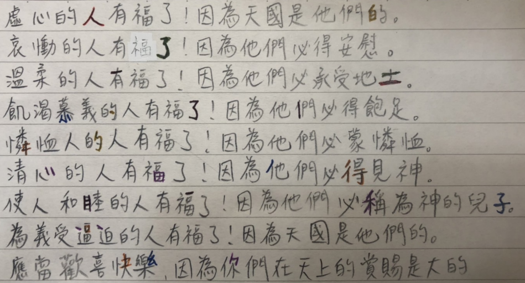 虛心的人有福了！因為天國是他們的。
哀慟的人有福了！因為他們必得安慰。
溫柔的人有福了！因為他們必承受地土。
飢渴慕義的人有福了！因為他們必得飽足。
憐恤人的人有福了！因為他們必蒙憐恤。
清心的人有福了！因為他們必得見神。
使人和睦的人有福了！因為他們必稱為神的兒子。
為義受逼迫的人有福了！因為天國是他們的。
應當歡喜快樂，因為你們在天上的賞賜是大的